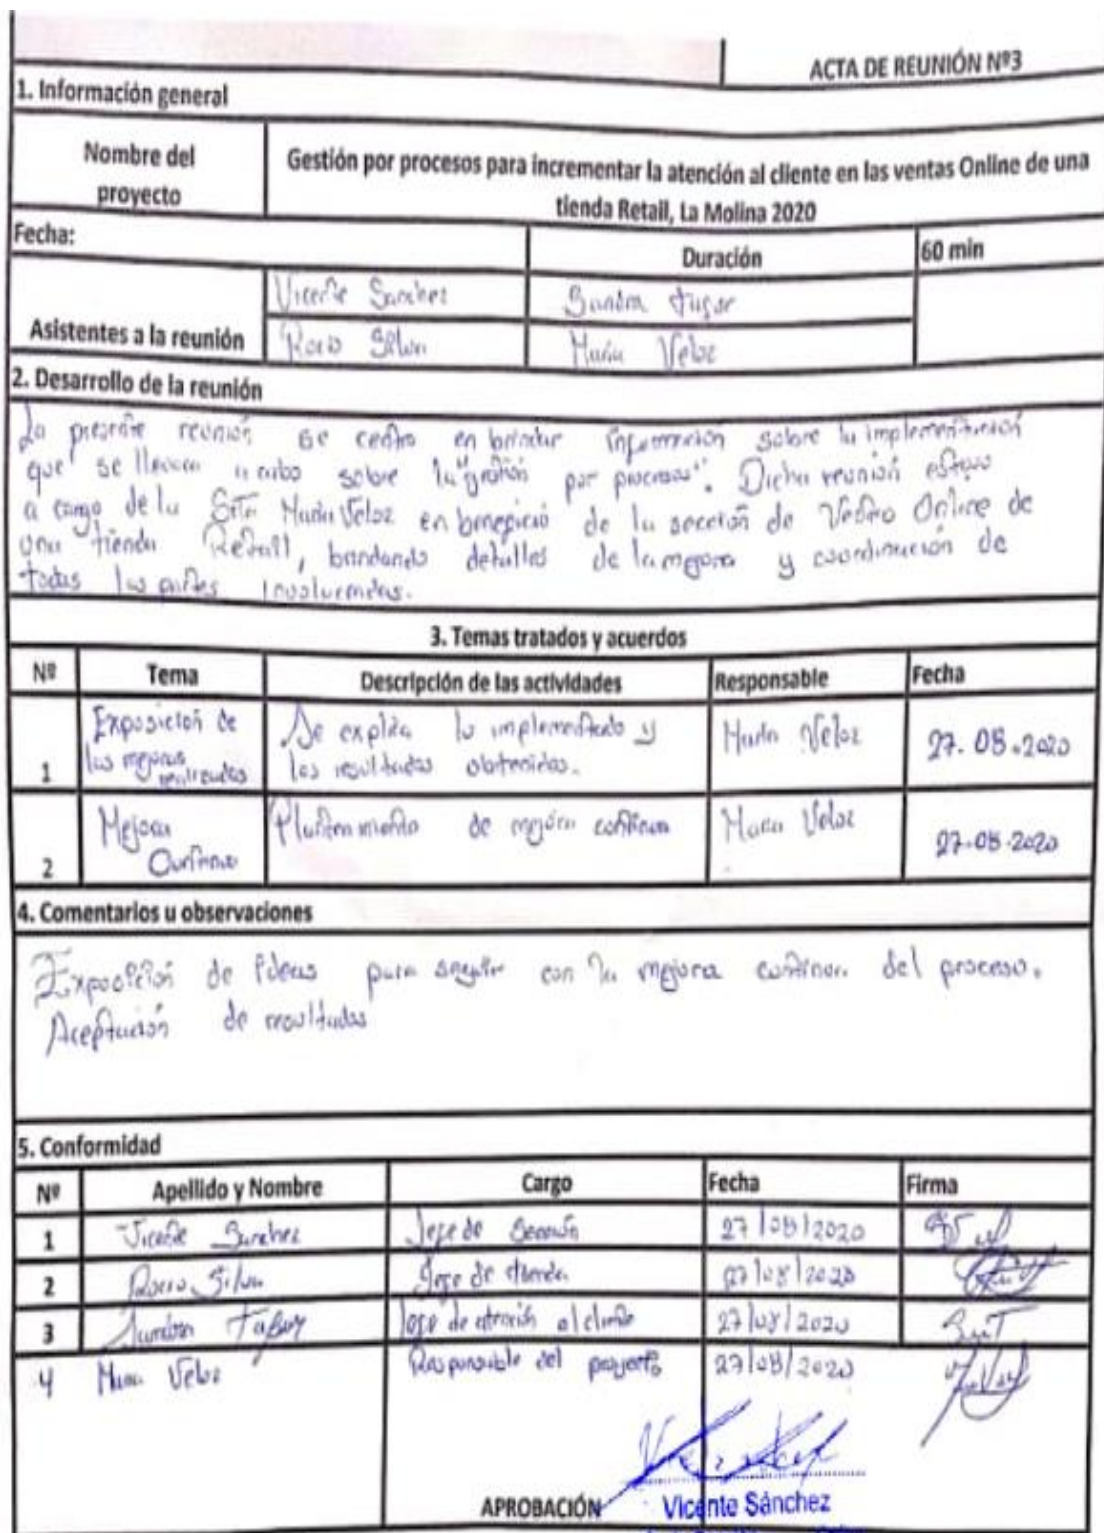 ACTA DE REUNIÓN Nº3
1. Información general
Nombre del
proyecto
Gestión por procesos para incrementar la atención al cliente en las ventas Online de una
tienda Retail, La Molina 2020
Fecha:
Duración
60 min
Asistentes a la reunión
Vicente Sanchez
Sandra
Rocio Silva
Maria Veloz
2. Desarrollo de la reunión
La presente reunión se centro en brindar información sobre la implementación
que se llevara a cabo sobre la "gestión por procesos". Dicha reunión estuvo
a cargo de la Srta Maria Veloz en beneficio de la sección de Online de
una tienda Retail, brindando detalles de la mejora y coordinación de
todas las partes involucradas.
3. Temas tratados y acuerdos
Nº
Tema
Descripción de las actividades
Responsable
Fecha
1
Exposición de
las mejoras
realizadas
Se explica lo implementado y
los resultados obtenidos.
Maria Veloz
27.08.2020
2
Mejora
Continua
Planteamiento de mejora continua
Maria Veloz
27.08.2020
4. Comentarios u observaciones
Exposición de ideas para seguir con la mejora continua del proceso.
Aceptación de resultados
5. Conformidad
Nº
Apellido y Nombre
Cargo
Fecha
Firma
1
Vicente Sanchez
Jefe de Sección
27/08/2020
2
Rocio Silva
Jefe de tienda
27/08/2020
3
Sandra
Jefe de atención al cliente
27/08/2020
4
Maria Veloz
Responsable del proyecto
27/08/2020
APROBACIÓN
Vicente Sánchez